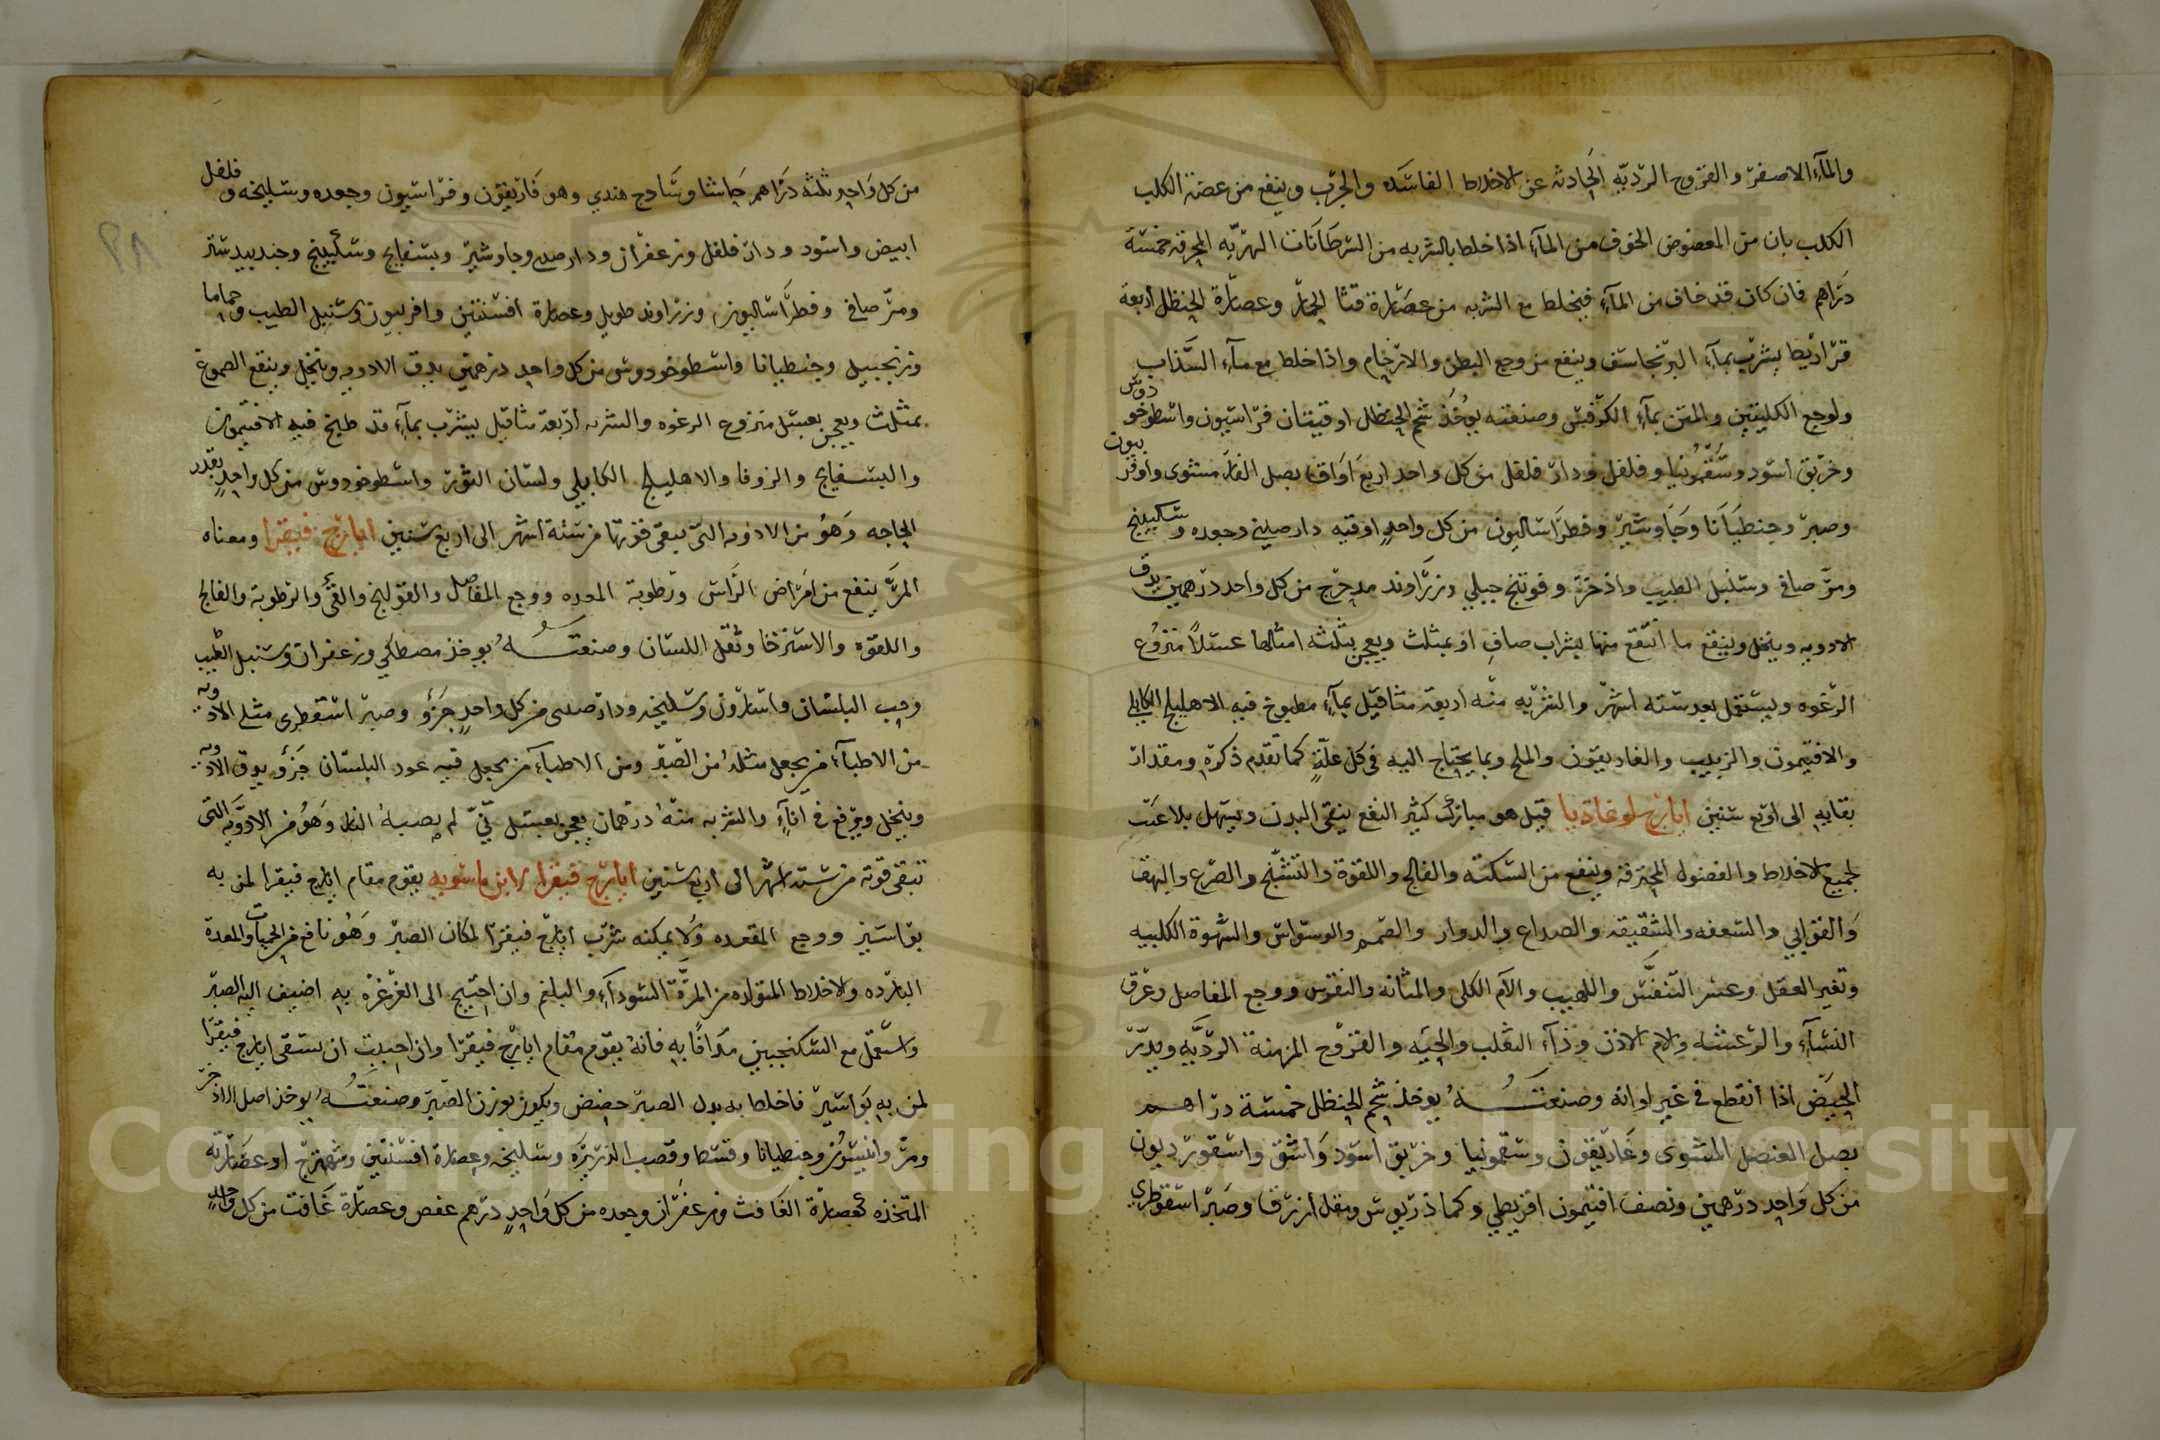 والمآء الاصفر والقروح الرديّه الحادثه عن الاخلاط الفاسده والجرب وينفع من عضة الكلب
الكلب بان من المعضوض الخوف من المآء اذا خلط بالشربه من السرطانات النهريّه المحرقه خمسة
دراهم فان كان قد خاف من المآء فيخلط مع الشربه من عصارة قثا الحمار وعصارة الحنظل اربعة
قراريط يشرب بمآء البرنجاسف وينفع من وجع البطن والارحام واذا خلط مع مآء السذاب
ولوجع الكليتين والمتن بمآء الكرفس وصنعته يوخذ شحم الحنظل اوقيتان فراسيون واسطوخودوس
وخربق اسود وسقمونيا وفلفل ودار فلفل من كل واحد اربع اواق بصل الفار مشوى وافربيون
وصبر وجنطيانا وجاوشير وفطراساليون من كل واحد اوقيه دارصيني وجعده وسكبينج
ومرّ صافي وسنبل الطيب واذخر وفوتنج جبلي وزراوند مدحرج من كل واحد درهمين يدق
الادويه وينخل وينقع ما انتقع منها بشراب صاف او بمثلث ويعجن بثلثه امثالها عسلاً منزوع
الرغوه ويستعمل بعد سته اشهر والشربه منه اربعة مثاقيل بمآء مطبوخ فيه الاهليلج الكابلي
والافتيمون والزبيب والغاريقون والملح وبما يحتاج اليه في كل علّةٍ كما تقدم ذكره ومقدار
بقايه الى اربع سنين ايارج لوغاديا قيل هو مبارك كثير النفع ينقى البدن ويسهل بلا عنت
لجميع الاخلاط والفضول المحترقه وينفع من السكته والفالج واللقوة والتشنج والصرع والبهق
والقوابي والسعفه والشقيقه والصداع والدوار والصمم والوسواس والشهوة الكلبيه
وتغير العقل وعسر التنفس واللهيب والآم الكلى والمثانه والنقرس ووجع المفاصل وعرق
النسآء والرعشه ولام الاذن ودآء الثعلب والحيّه والقروح المزمنة الرديّه ويدرّ
الحيض اذا انقطع في غير اوانه وصنعتــه يوخذ شحم الحنظل خمسة دراهــم
بصل العنصل المشوى وغاريقون وسقمونيا وخربق اسود واشق واسقورديون
من كل واحد درهمين ونصف افتيمون اقريطي وكماذريوس ومقل ازرق وصبر اسقوطري
من كل واحد ثلثه دراهم حاشا وسادج هندي وهوفاريقون وفراسيون وجعده وسليخه وفلفل
ابيض واسود ودار فلفل وزعفران ودارصيني وجاوشير وبسفايج وسكبينج وجندبيدستر
ومرّ صافي وفطراساليون وزراوند طويل وعصارة افسنتين وافربيون وسنبل الطيب وحماما
وزنجبيل وجنطيانا واسطوخودوس من كل واحد درهمين يدق الادويه وينخل وينقع الصموغ
بمثلث ويعجن بعسل منزوع الرغوه والشربه اربعة مثاقيل يشرب بمآء قد طبخ فيه الافتيمون
والبسفايج والزوفا والاهليلج الكابلي ولسان الثور واسطوخودوس من كل واحدٍ بقدر
الحاجه وهو من الادويه التى تبقى قوتها من ستة اشهر الى اربع سنين ايارج فيقرا ومعناه
المرّ ينفع من امراض الراس ورطوبة المعده ووجع المفاصل والقولنج والقئ والرطوبة والفالج
واللقوه والاسترخا وثقل اللسان وصنعتــه يوخذ مصطكي وزعفران وسنبل الطيب
وحب البلسان واسارون وسليخه ودارصيني من كل واحدٍ جزؤ وصبر اسقطري مثلى الادويه
من الاطبآء من يجعل مثله من الصبر ومن الاطبآء من يجعل فيه عود البلسان جزؤ يدق الادويه
وينخل ويرفع في انآءٍ والشربه منه درهمان يعجن بعسل نّي لم يصبه النار وهو من الادويه التى
تبقى قوته من سته اشهر الى اربع سنين ايارج فيقرا لابن ماسويه يقوم مقام ايارج فيقرا لمن به
بواسير ووجع المقعده ولا يمكنه شرب ايارج فيقرا لمكان الصبر وهو نافع من الحميات والمعدة
البارده والاخلاط المتولده من المرّة السودآء والبلغم وان احتيج الى الغرغره به اضيف اليه الصبر
واستعمل مع السكنجبين مدافًا به فانه يقوم مقام ايارج فيقرا وان احببت ان يسقى ايارج فيقرا
لمن به بواسير فاخلط به بدل الصبر حضض ويكون بوزن الصبر وصنعتــه يوخذ اصل الاذخر
ومرّ وانيسون وجنطيانا وقسط وقصب الذريره وسليخه وعصارة افسنتين وشهترج او عصارته
المتخذه كعصارة الغافت وزعفران وجعده من كل واحدٍ درهم عفص وعصارة غافت من كل واحدٍ
٢٨
Copyright © King Saud University
1957